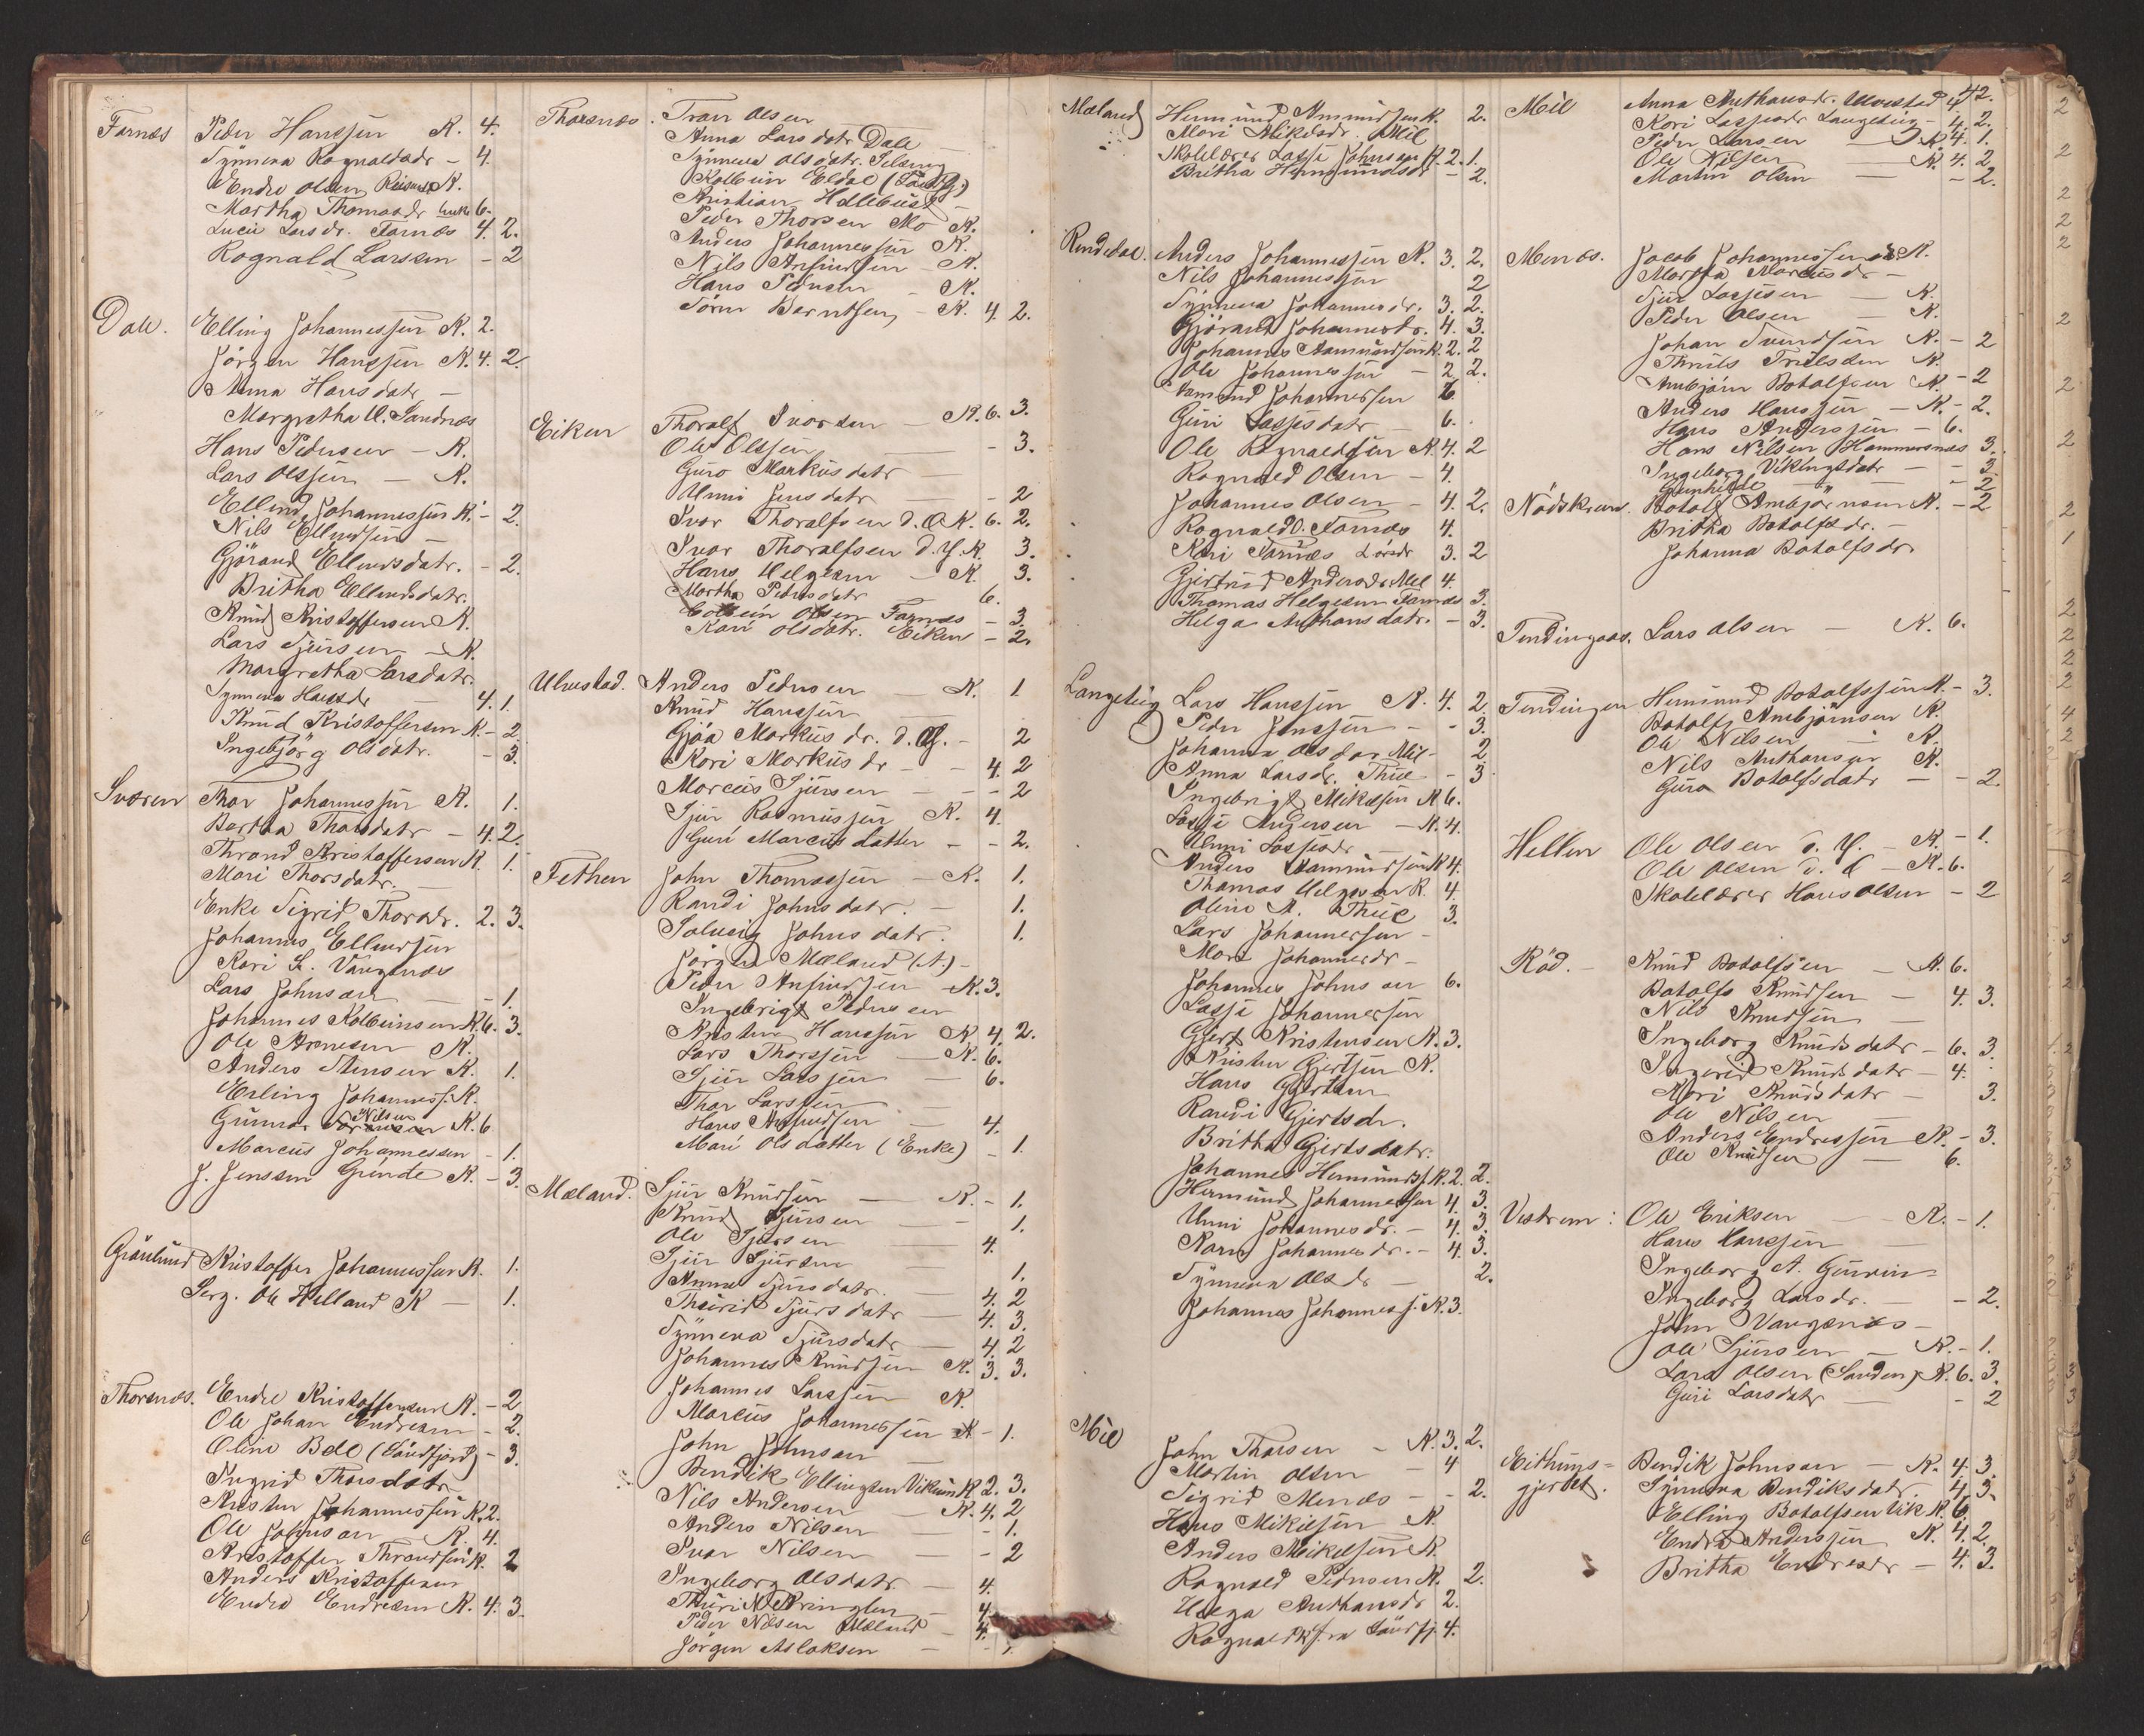 Farnæs Peder Hanssen K. 4.
Synneva Rognaldsdr - 4.
Endre Olsen K.
Martha Thomasdr Enke 6.
Lucie Larsdr. Farnæs 4. 2.
Rognald Larsen - 2
Dale. Elling Johannessen K. 2.
Jörgen Hanssen K. 4. 2.
Anna Hansdatr -
Margretha U. Sandnæs
Hans Pedersen - K.
Lars Olssen - K.
Ellend Johannessen K. - 2.
Nils Ellendsen -
Gjörand Ellendsdatr. - 2.
Britha Ellendsdatr.
Knud Kristoffersen K.
Lars Sjursen - K.
Margretha Larsdatr.
Synneva Hansdr 4. 1.
Knud Kristoffersen K. - 2.
Ingebjörg Olsdatr. - 3.
Sværen Thor Johannessen K. 1.
Bertha Thorsdatr - 4. 2.
Thrond Kristoffersen K. 1.
Mari Thorsdatr. -
Enke Sigrid Thorsdr. 2. 3.
Johannes Ellendsen
Kari L. Vangsnæs
Lars Johnsen - 1.
Johannes Kolbeinsen K. 6. 3.
Ole Arnesen K.
Anders Stensen K. 1.
Erling Johanness. K.
Gunnar Nilsen K. 6
Marcus Johannessen - 1.
J. Jenssen Grinde K. - 3.
Grönlund Kristoffer Johannessen K. 1.
Serg. Ole Helland K - 1.
Thorsnæs. Endre Kristoffersen K. - 2
Ole Johan Endresen - 2.
Oline Bell (Söndfjord) - 3.
Ingrid Thorsdatr
Kristen Johannessen K. 2.
Ole Johnsen K. 4.
Kristoffer Throndsen K. 2
Anders Kristoffersen
Endre Endresen K. 4. 3.
Thorsnæs. Tron Olsen
Anna Larsdatr Dale -
Synneva Olsdatr.
Kolbein Eldal (Söndfj.)
Kristian Hellebust -
Peder Thorsen Mo K.
Anders Johannessen K.
Nils Anfindsen - K.
Hans - K.
Sörn Berntsen - K. 4. 2.
Eiken Thoralf Ivarsen - K. 6. 3.
Ole Olssen - - 3.
Guro Markusdatr -
Unni Jensdatr - - 2
Ivar Thoralfsen d. Æ. K. 6. 2.
Ivar Thoralfsen d. Y. K. 3.
Hans Helgesen - K. 3.
Martha Pedersdatr 6.
Kolbein Olsen Farnæs - 3.
Kari Olsdatr. Eiken - 2.
Ulvestad. Anders Pedersen - K. 1
Knud Hanssen -
Gjöa Markusdr. - 2
Kari Markusdr - - 4. 2
Marcus Sjursen - - - 2
Sjur Rasmussen K. 4.
Guri Marcusdatter - - 2.
Fethen John Thomassen - K. 1.
Randi Johnsdatr. - 1.
Solveig Johnsdatr. 1.
Jörgen Mæland (A.) -
Peder Anfindsen - K. 3.
Ingebrigt Pedersen
Kristen Hanssen K. 4. 2.
Lars Thorssen - K. 6.
Sjur Larssen - 6.
Thor Larssen -
Hans Anfindsen - 4.
Mari Olsdatter (Enke) - 1
Mæland. Sjur Knudsen - K. - 1.
Knud Sjursen - - 1.
Ole Sjursen - 4.
Sjur Sjursen - 1.
Anna Sjursdatr. - 4. 2
Thurid Sjursdatr - 4. 3.
Synneva Sjursdatr - 4. 2
Johannes Knudsen K. 3. 3.
Johannes Larssen K.
Marcus Johannessen K - 1.
John Johnsen -
Bendik Ellingsen Vikum K. 2. 3.
Nils Andersen K. 4. 2
Anders Nilsen - 1.
Ivar Nilsen - 2
Ingeborg Olsdatr. - 4.
Thuri N. Kringlen - 4.
Peder Nilsen Mæland - 4.
Jörgen Aslaksen - - 1.
Mæland Hermund Ammundsen K. 2.
Mari Mikelsdr. Mel
Skolelærer Lasse Johnsen K. 2. 1.
Britha Hermundsdr - 2.
Rendedal. Anders Johannessen K. 3. 2.
Nils Johannessen 2
Synneva Johannesdr. 3. 2.
Gjörand Johannesdr. 4. 3.
Johannes Aamundsen K. 2. 2
Ole Johannessen - 2 2.
Aamund Johannessen 6.
Guri Lassesdatr - 6.
Ole Rognaldsen K. 4. 2
Rognald Olsen - 4.
Johannes Olsen - 4. 2.
Rognald O. Farnæs 4.
Kari Farnæs Larsdr 3. 2
Gjertrud Andersdr. Mel 4.
Thomas Helgesen Farnæs 3.
Helga Anthonsdatr. - 3.
Langeteig Lars Hanssen K. 4. 2
Peder Jenssen - 3.
Johanna Olsdar Mel - 2.
Anna Larsdr. Thue - 3.
Ingebrigt Mikelsen K 6.
Lasse Andersen - K. 4.
Unni Lassesdr -
Anders Aamundsen K 4.
Thomas Helgesen K. 4.
Oline A. Thue 3.
Lars Johannessen -
Mari Johannesdr -
Johannes Johnsen 6.
Lasse Johannessen
Gjert Kristensen K. 3.
Kristen Gjertsen K.
Hans Gjertsen
Randi Gjertsdr.
Britha Gjertsdatr.
Johannes Hermunds. K. 2. 2.
Hermund Johannessen 4. 3.
Unni Johannesdr. - 4. 3.
Kari Johannesdr. - 4. 3.
Synneva Olsdr - 2.
Johannes Johanness. K. 3.
Mel John Thorsen - K. 3. 2.
Martin Olsen - 4
Sigrid Menæs - - 2.
Hans Mikelsen K.
Anders Mikelsen K.
Rognald Pedersen K. 2.
Helga Anthonsdr 2.
Rognald K. fra Söndfj. 4.
Mel Anna Anthonsdr. Ulvestad 4 2.
Kari Lassesdr Langeteig - 4. 2.
Peder Larsen - K. 4. 1.
Ole Nilsen K. 4. 2
Martin Olsen - - 2.
Menæs. Jacob Johannessen K.
Martha Marcusdr -
Sjur Lassesen - K.
Peder Olsen - K.
Johan Svendsen K. - 2
Thruls Trulsen K.
Ambjörn Botolfsen K. - 2
Anders Hanssen - K. - 2.
Hans Anderssen - 6.
Hans Nilsen Hammersnæs 3.
Ingeborg Vikingsdatr - - 3
Gunhilde - 2
Nödskreen. Botolf Ambjörnsen K. - 2
Britha Botolfsdr. -
Johanna Botolfsdr.
Tendingaas. Lars Olsen - K. 6.
Tendingen Hermund Botolfssen K. - 3.
Botolf Ambjörnsen K.
Ole Nilsen - K.
Nils Anthonsen K.
Guro Botolfsdatr - - 2.
Hellen Ole Olsen d. Y. - K. - 1.
Ole Olsen d. Æ - K. 6.
Skolelærer Hans Olsen - 2
Röd. - Knud Botolfsen - K. 6.
Botolf Knudsen - 4. 3.
Nils Knudsen -
Ingeborg Knudsdatr - 6. 3.
Ingerid Knudsdatr - 4.
Mari Knudsdatr - 3.
Ole Nilsen -
Anders Endressen K. - 3.
Ole Knudsen - 6.
Vestrem: Ole Eriksen - K. - 1.
Hans Hanssen -
Ingeborg A.
Ingeborg Larsdr. - - 2.
John Vangsnæs -
Ole Sjursen - K. - 1.
Lars Olsen (Sanden) K. 6. 3.
Guri Larsdatr - - 2
Eithungsgjerdet. Bendik Johnsen - K. 4. 3.
Synneva Bendiksdatr. 4. 3.
Elling Botolfsen Vik K. 6.
Endre Anderssen K. 4. 2.
Britha Endresdr - 4. 3.